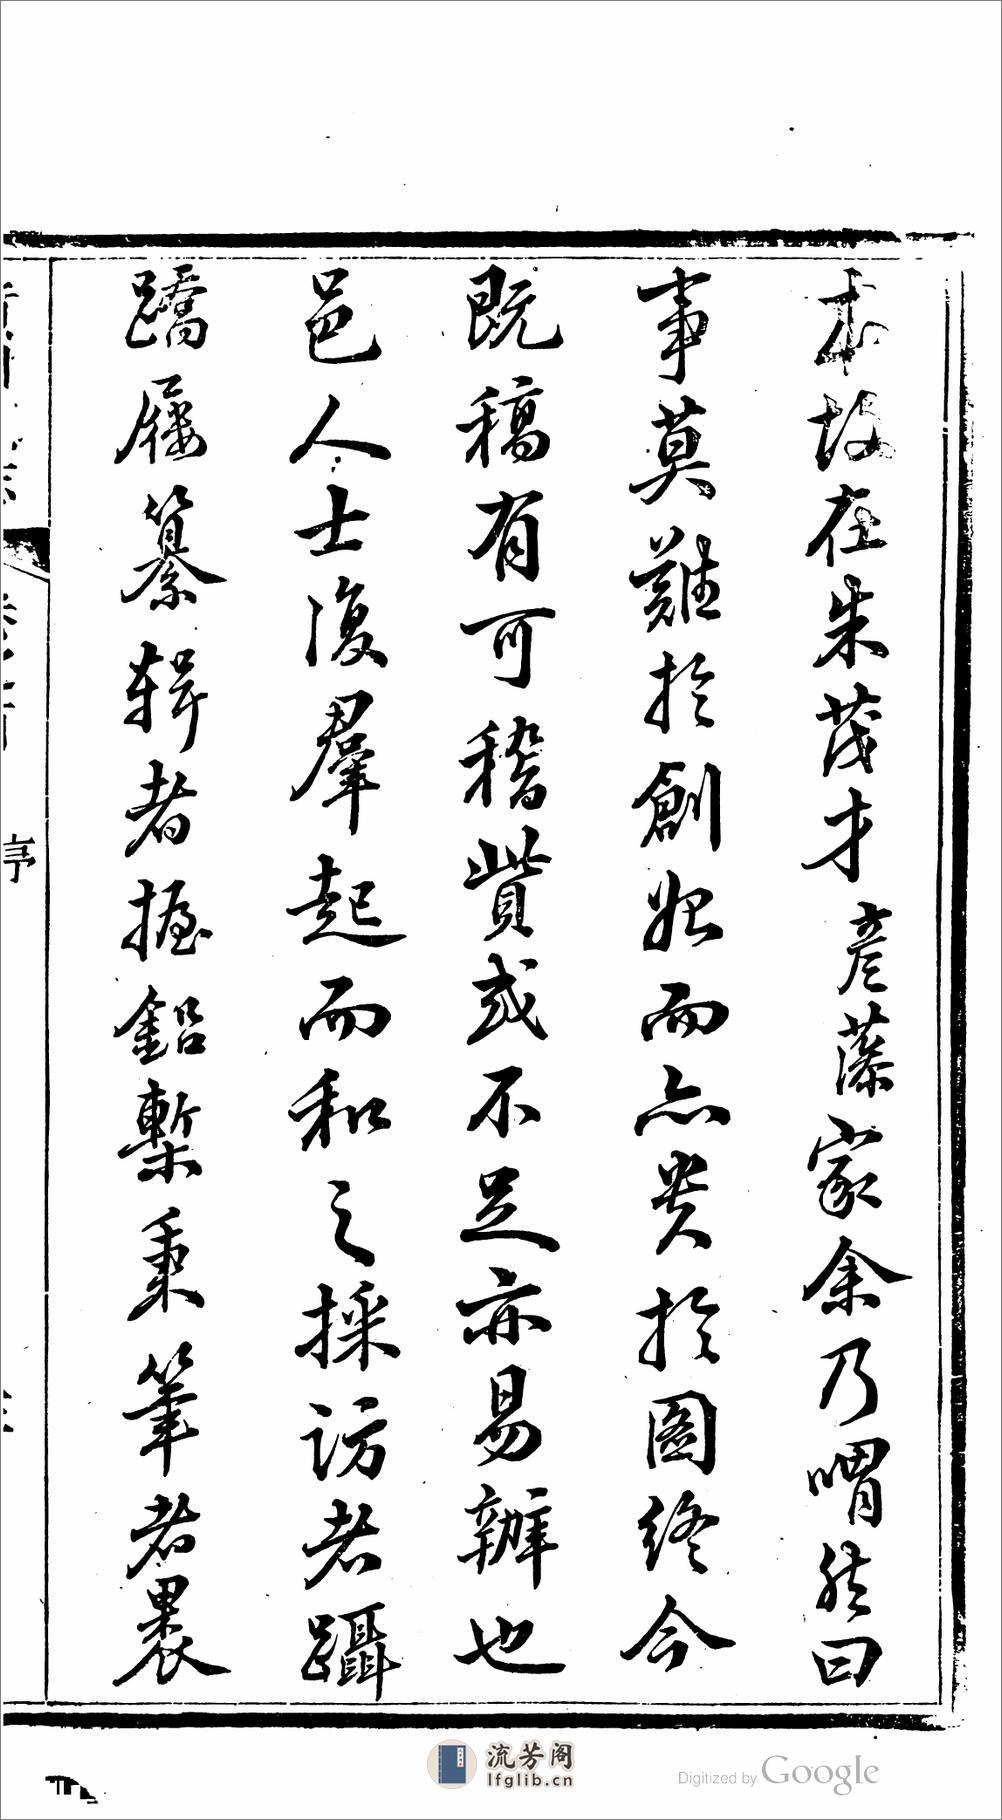 本故在朱茂才彥藻家余乃喟然曰
事莫難於創始而亦貴於圖終今
既稿有可稽貲或不足亦易辦也
邑人士復羣起而和之採訪者躡
蹻屩纂輯者握鉛槧秉筆者裹
序
流芳阁
lfglib.cn
Digitized by Google